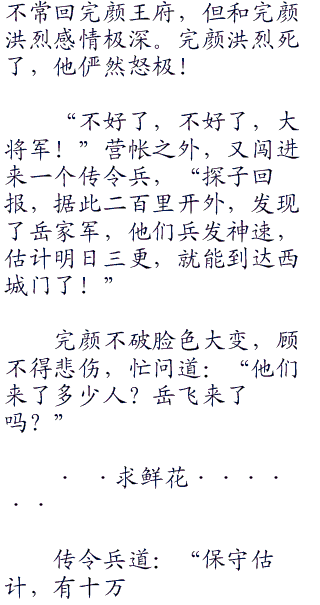 不常回完颜王府，但和完颜
洪烈感情极深。完颜洪烈死
了，他俨然怒极！
“不好了，不好了，大
将军！”营帐之外，又闯进
来一个传令兵，“探子回
报，据此二百里开外，发现
了岳家军，他们兵发神速，
估计明日三更，就能到达西
城门了！”
完颜不破脸色大变，顾
不得悲伤，忙问道：“他们
来了多少人？岳飞来了
吗？”
· ·求鲜花· · · ·
· ·
传令兵道：“保守估
计，有十万